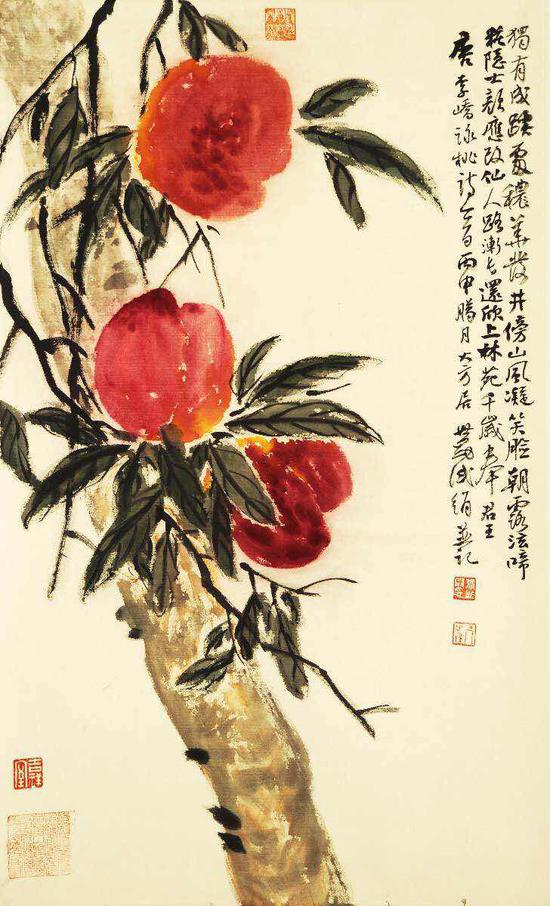 獨有成蹊處穠華發井傍山風凝笑臉朝露泫啼
妝隱士顏應改仙人路漸長還欣上林苑千歲奉君王
唐李嶠詠桃詩一首丙申臘月大方居試絹並記